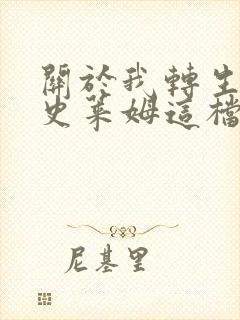 關於我轉生
史萊姆這檔
尼基里